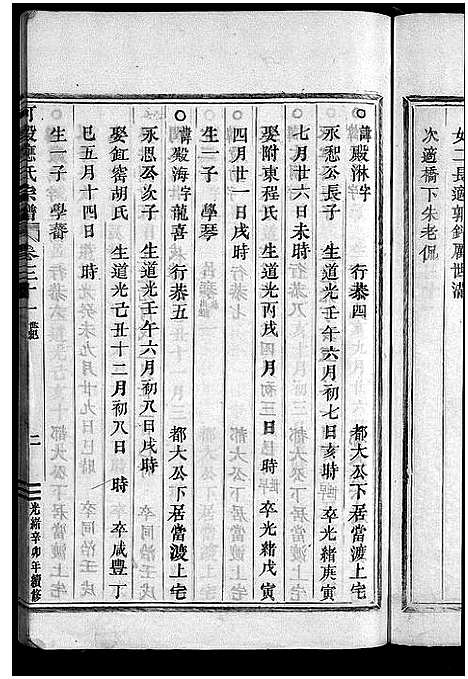 女二長適郭鈞厲世滿
次適橋下朱老侃
○諱殿淋字　行恭四　都大公下居當渡上宅
永恕公長子　生道光壬午六月初七日亥時　卒光緒庚寅
七月廿六日未時
娶附東程氏　生道光丙戌四月初三日　時　卒光緒戊寅
四月廿一日戌時
生一子　學琴
○諱殿海字龍喜　行恭五　都大公下居當渡上宅
永恩公次子　生道光壬午六月初八日戌時
娶缸窰胡氏　生道光己丑十二月初八日　時　卒咸豐丁
巳五月十四日　時
生一子　學
應氏宗譜　卷三十一　二　光緒辛卯年續修